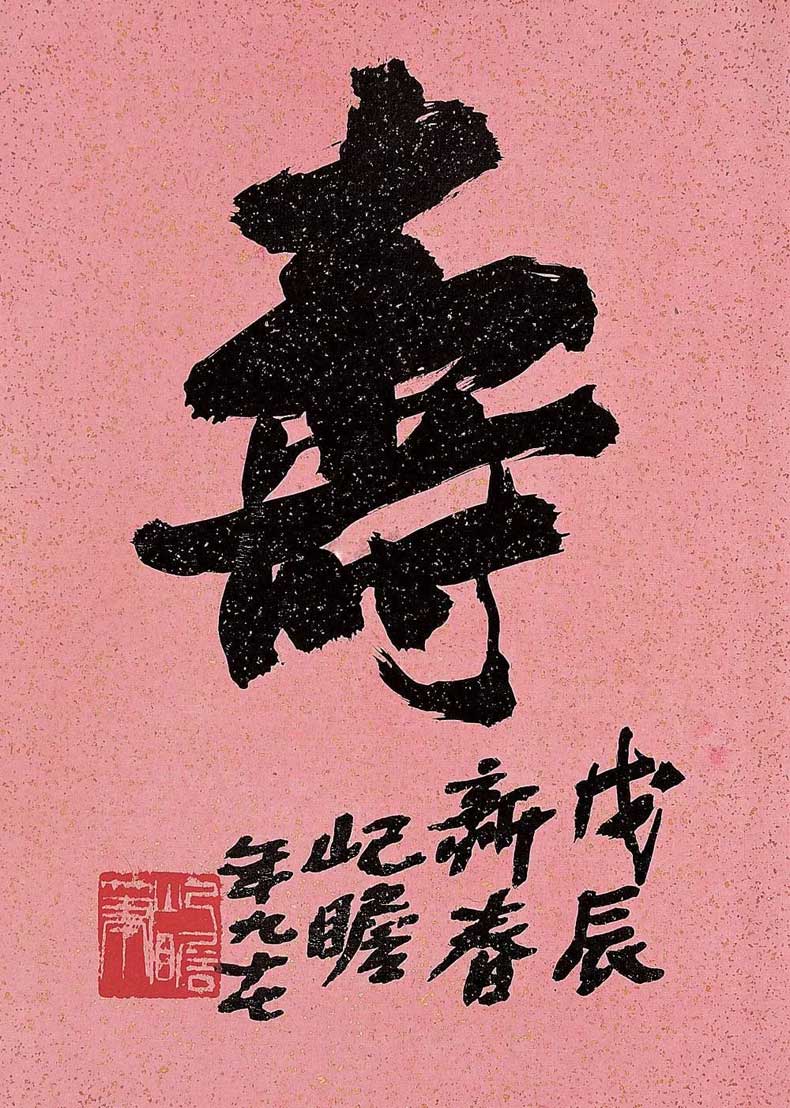 壽
戊辰
新春
屺瞻
年九十七
屺瞻